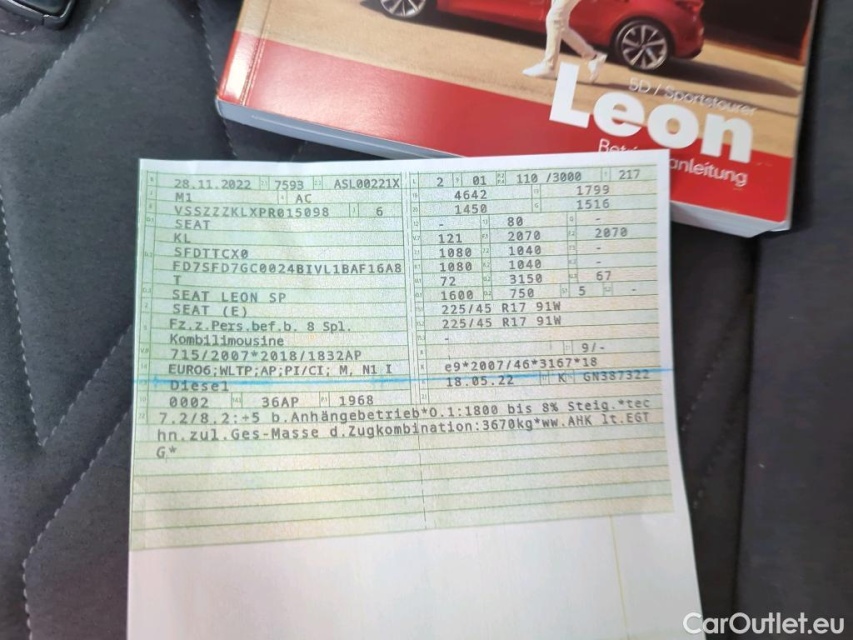 5D / Sportstourer
Leon
28.11.2022 7593 ASL00221X
M1 AC
VSSZZZKLXPR015098 6
SEAT
KL
SFDTTCX0
FD7SFD7GC0024BIVL1BAF16A8
T
SEAT LEON SP
SEAT (E)
Fz.z.Pers.bef.b. 8 Spl.
Kombilimousine
715/2007*2018/1832AP
EURO6;WLTP;AP;PI/CI; M, N1 I
Diesel
0002 36AP 1968
2 01 110 /3000 217
4642 1799
1450 1516
- 80 -
121 2070 2070
1080 1040 -
1080 1040 -
72 3150 67
1600 750 5 -
225/45 R17 91W
225/45 R17 91W
-
- 9/-
e9*2007/46*3167*18
18.05.22 K GN387322
7.2/8.2:+5 b.Anhängebetrieb*O.1:1800 bis 8% Steig.*tec
hn.zul.Ges-Masse d.Zugkombination:3670kg*ww.AHK lt.EGT
G*
CarOutlet.eu